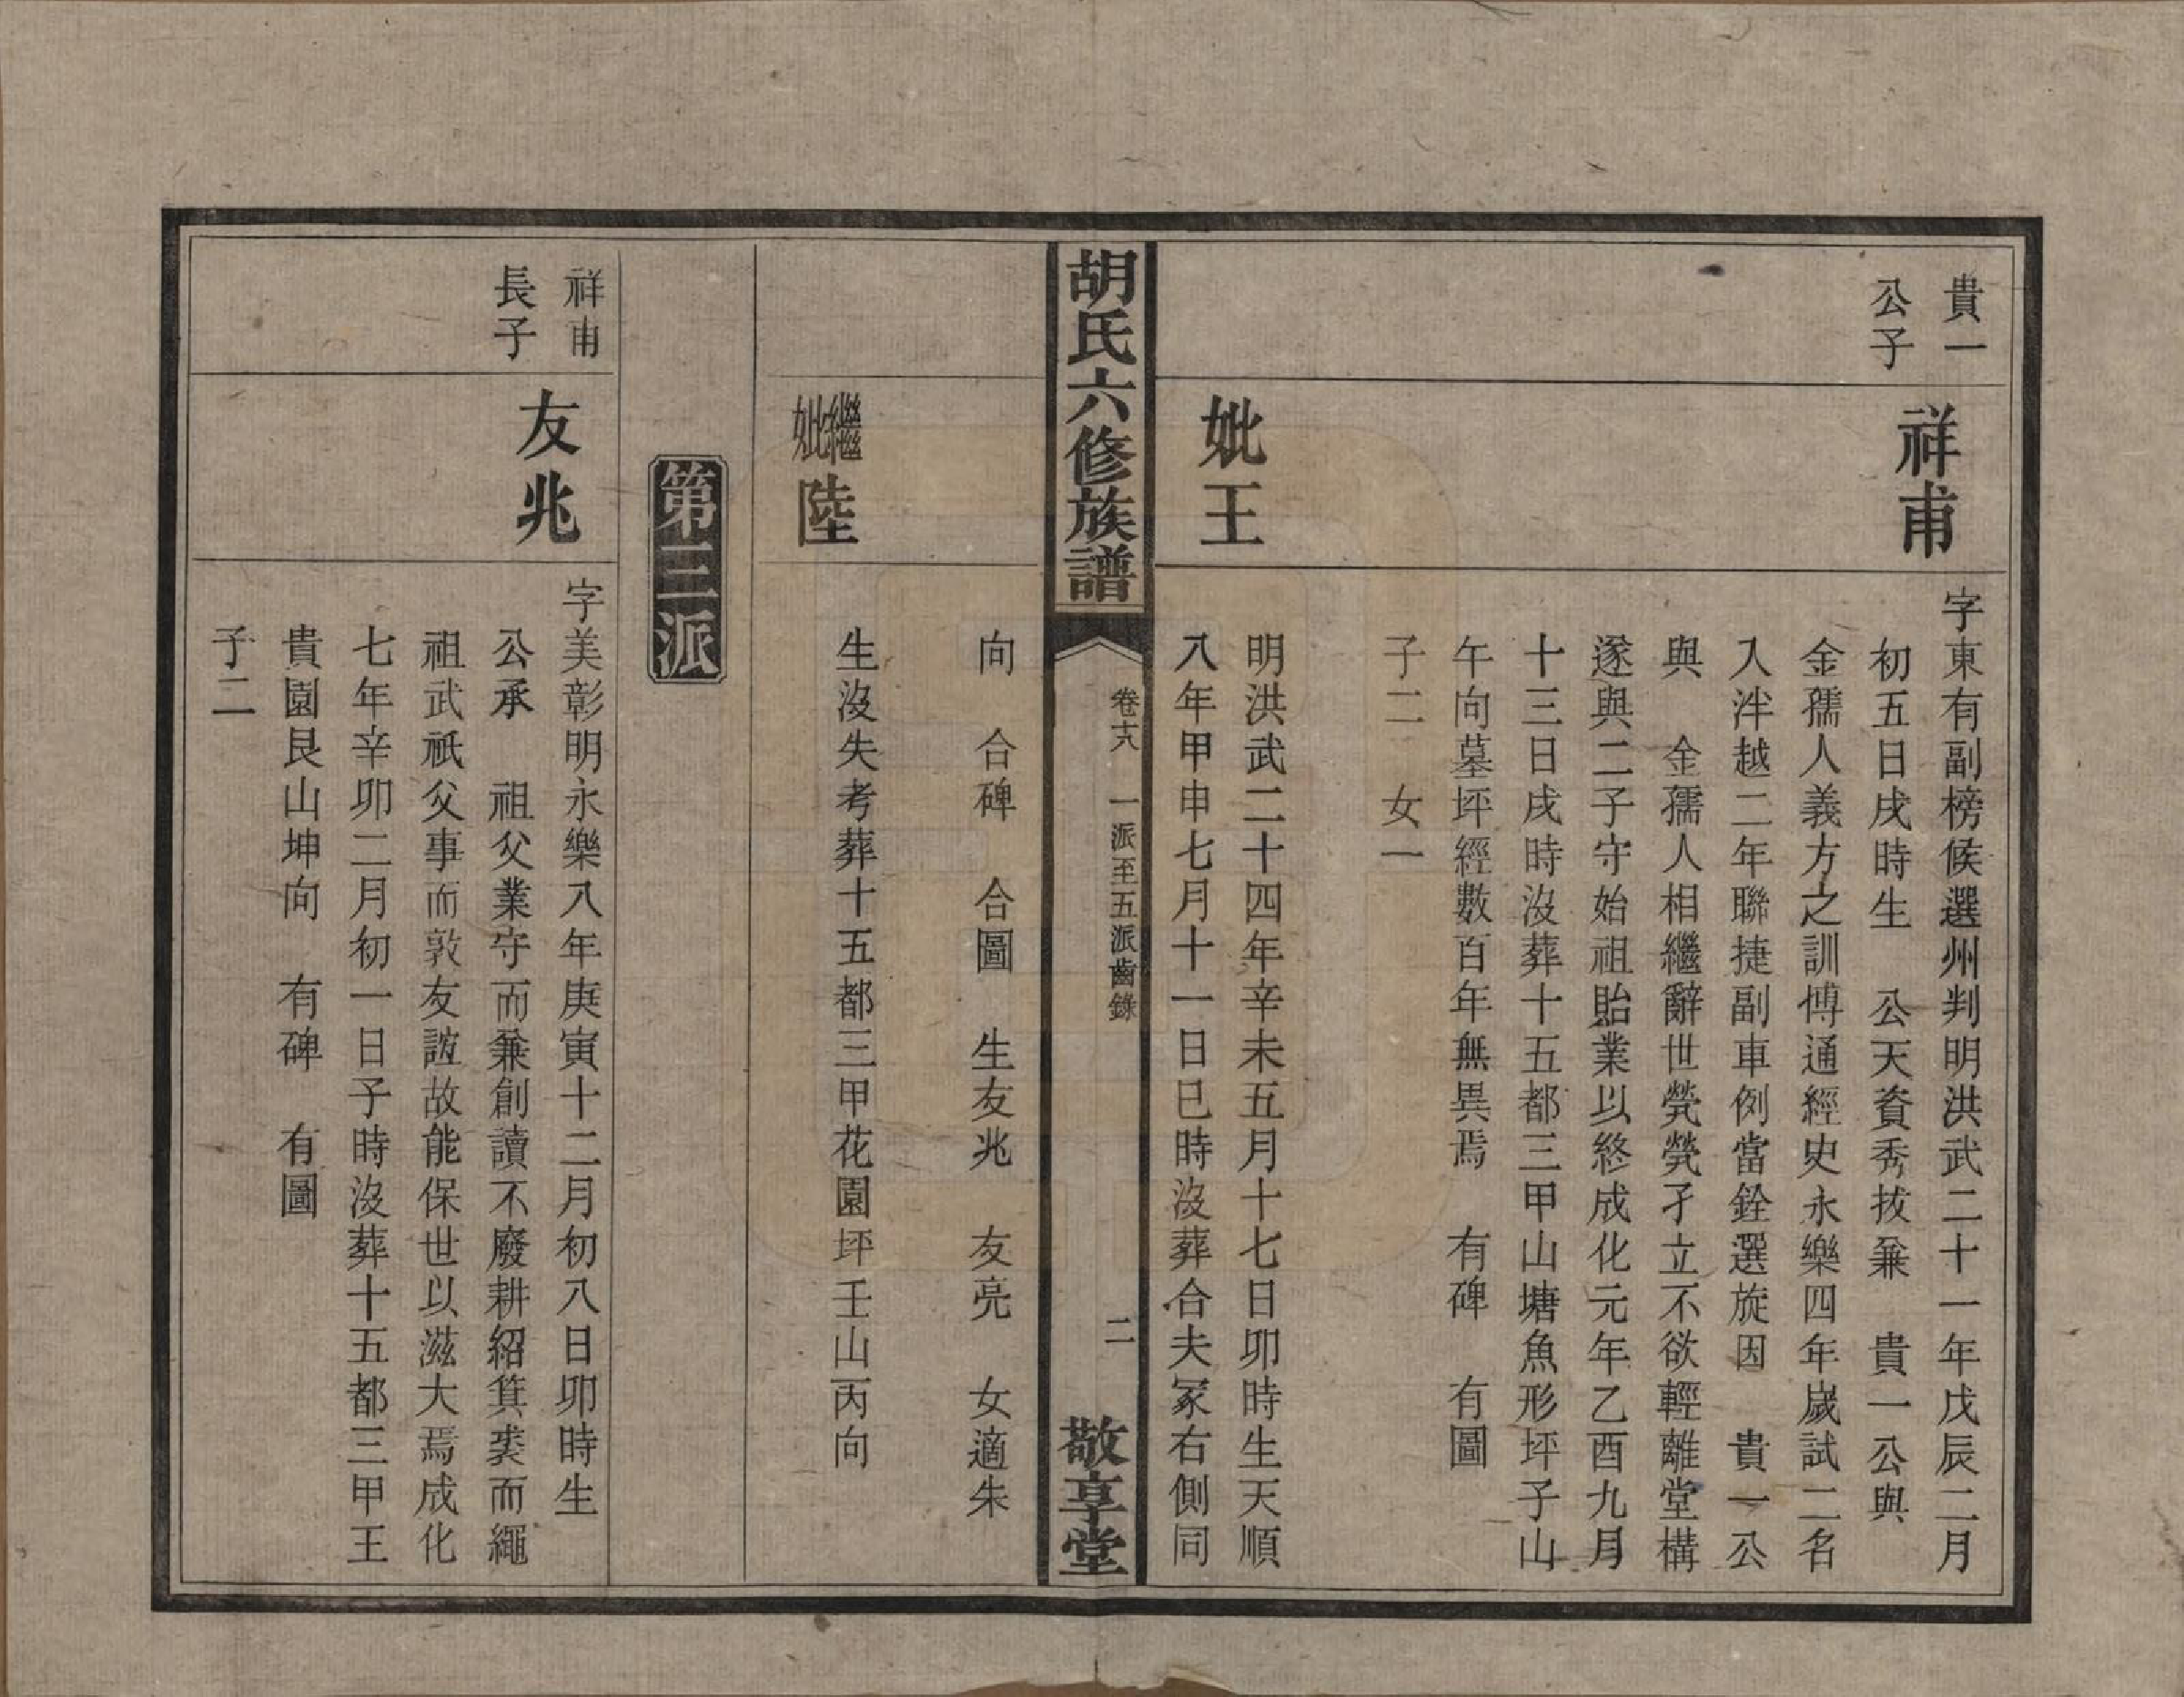 貴一
公子
祥甫
字東有副榜候選州判明洪武二十一年戊辰二月
初五日戌時生 公天資秀拔兼 貴一公與
金孺人義方之訓博通經史永樂四年歲試二名
入泮越二年聯捷副車例當銓選旋因 貴一公
與 金孺人相繼辭世煢煢孑立不欲輕離堂構
遂與二子守始祖貽業以終成化元年乙酉九月
十三日戌時沒葬十五都三甲山塘魚形坪子山
午向墓坪經數百年無異焉 有碑 有圖
子二 女一
妣王
明洪武二十四年辛未五月十七日卯時生天順
八年甲申七月十一日巳時沒葬合夫冢右側同
胡氏六修族譜
卷十八 一派至五派齒錄
二
敬享堂
向 合碑 合圖 生友兆 友亮 女適朱
繼妣陸
生沒失考葬十五都三甲花園坪壬山丙向
第三派
祥甫
長子
友兆
字美彰明永樂八年庚寅十二月初八日卯時生
公承 祖父業守而兼創讀不廢耕紹箕裘而繩
祖武祇父事而敦友誼故能保世以滋大焉成化
七年辛卯二月初一日子時沒葬十五都三甲王
貴園艮山坤向 有碑 有圖
子二